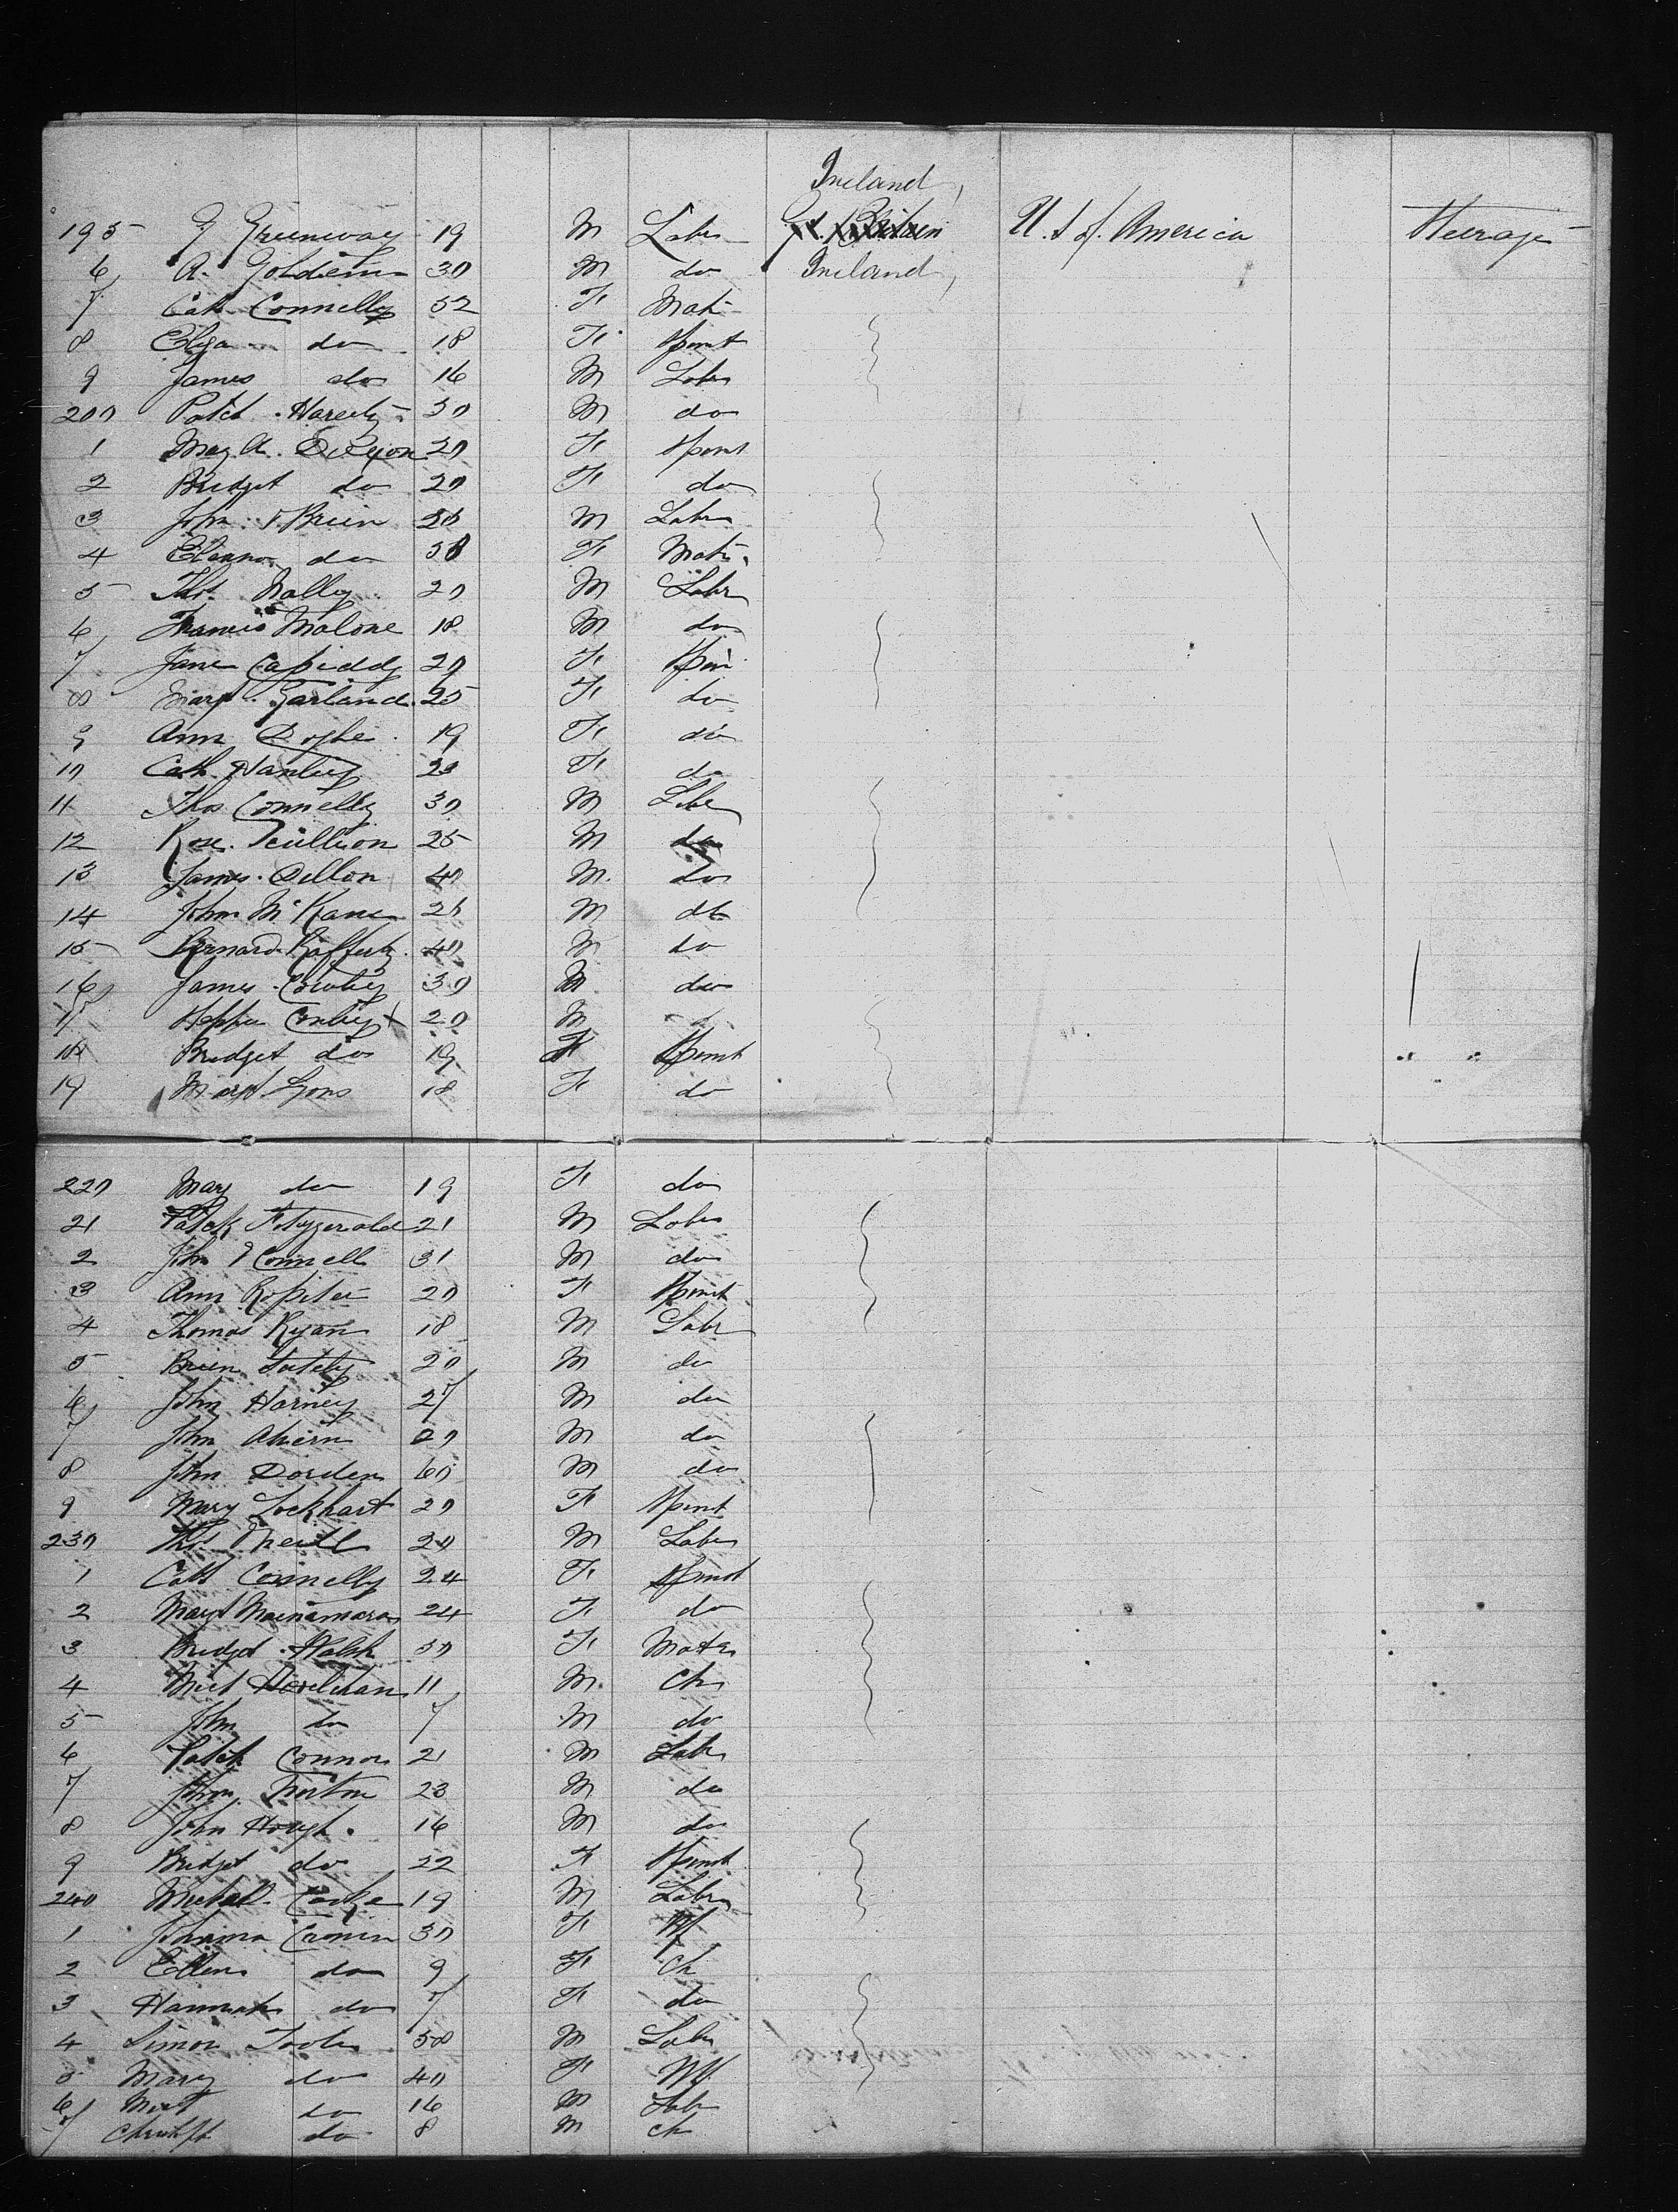 Ireland,
195 J Greenway 19 M Labr Gt. Britain U. S of America Steerage
6 A. 30 M do Ireland,
7 Cath Connelly 52 F Matr
8 Eliza do 18 F Spinst
9 James do 16 M Labr
200 Patck 30 M do
1 Mary A. 20 F Spinst
2 Bridget do 20 F do
3 John O'Brien M Labr
4 Eleanor do F Matr
5 Thos. Nally 20 M Labr
6 Francis Malone 18 M do
7 Jane Cassiddy 20 F Spin
8 Margt. Garland 25 F do
9 Ann 19 F do
10 Cath. Hanley 23 F do
11 Thos Connelly 30 M Labr
12 Rose Scullion 25 M do
13 James Dillon 40 M do
14 John McKane 26 M do
15 Bernard Rafferty 40 M do
16 James 30 M do
17 20 M
18 Bridget do 19 F Spinst
19 Margt. Lyons 18 F do
220 Mary do 19 F do
21 Patck Fitzgerald 21 M Labr
2 John O'Connell 31 M do
3 Ann Rossiter 20 F Spinst
4 Thomas Ryan 18 M Labr
5 Brien 20 M do
6 John Harney 27 M do
7 John Ahern 20 M do
8 John 60 M do
9 Mary Lockhart 20 F Spinst
230 Thos O'Neill 20 M Labr
1 Cath Connelly 24 F Spinst
2 Margt Macnamara 24 F do
3 Bridget Walsh 30 F Matr
4 Michl 11 M Ch
5 John do 7 M do
6 Patck Connor 21 M Labr
7 John Norton 23 M do
8 John Hough 16 M do
9 Bridget do 22 F Spinst
240 Michael 19 M Labr
1 Johanna Cronin 30 F Wf
2 Ellen do 9 F Ch
3 Hannah do 7 F do
4 Simon Toole 50 M Labr
5 Mary do 40 F Wf
6 Michl do 16 M Labr
7 Christr do 8 M Ch